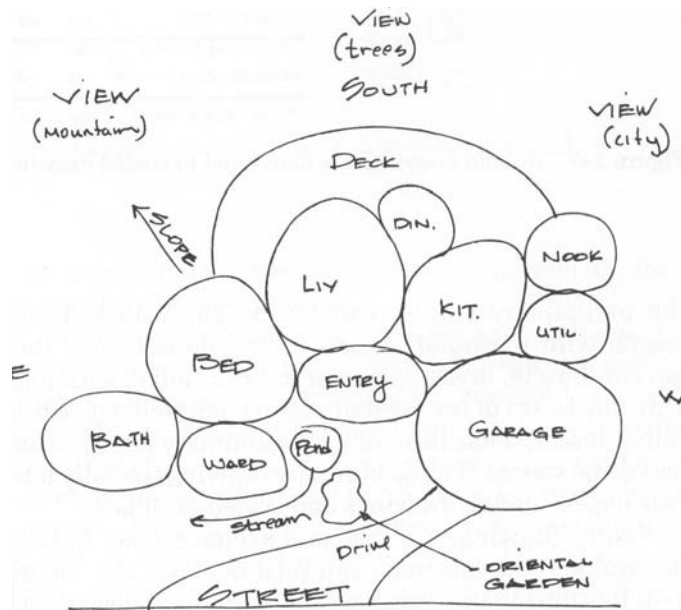 VIEW
(trees)
SOUTH
VIEW
(mountain)
VIEW
(city)
DECK
SLOPE
DIN.
NOOK
LIV
KIT.
UTIL
BED
ENTRY
E
W
BATH
WARD
Pond
GARAGE
Stream
Drive
ORIENTAL
GARDEN
STREET